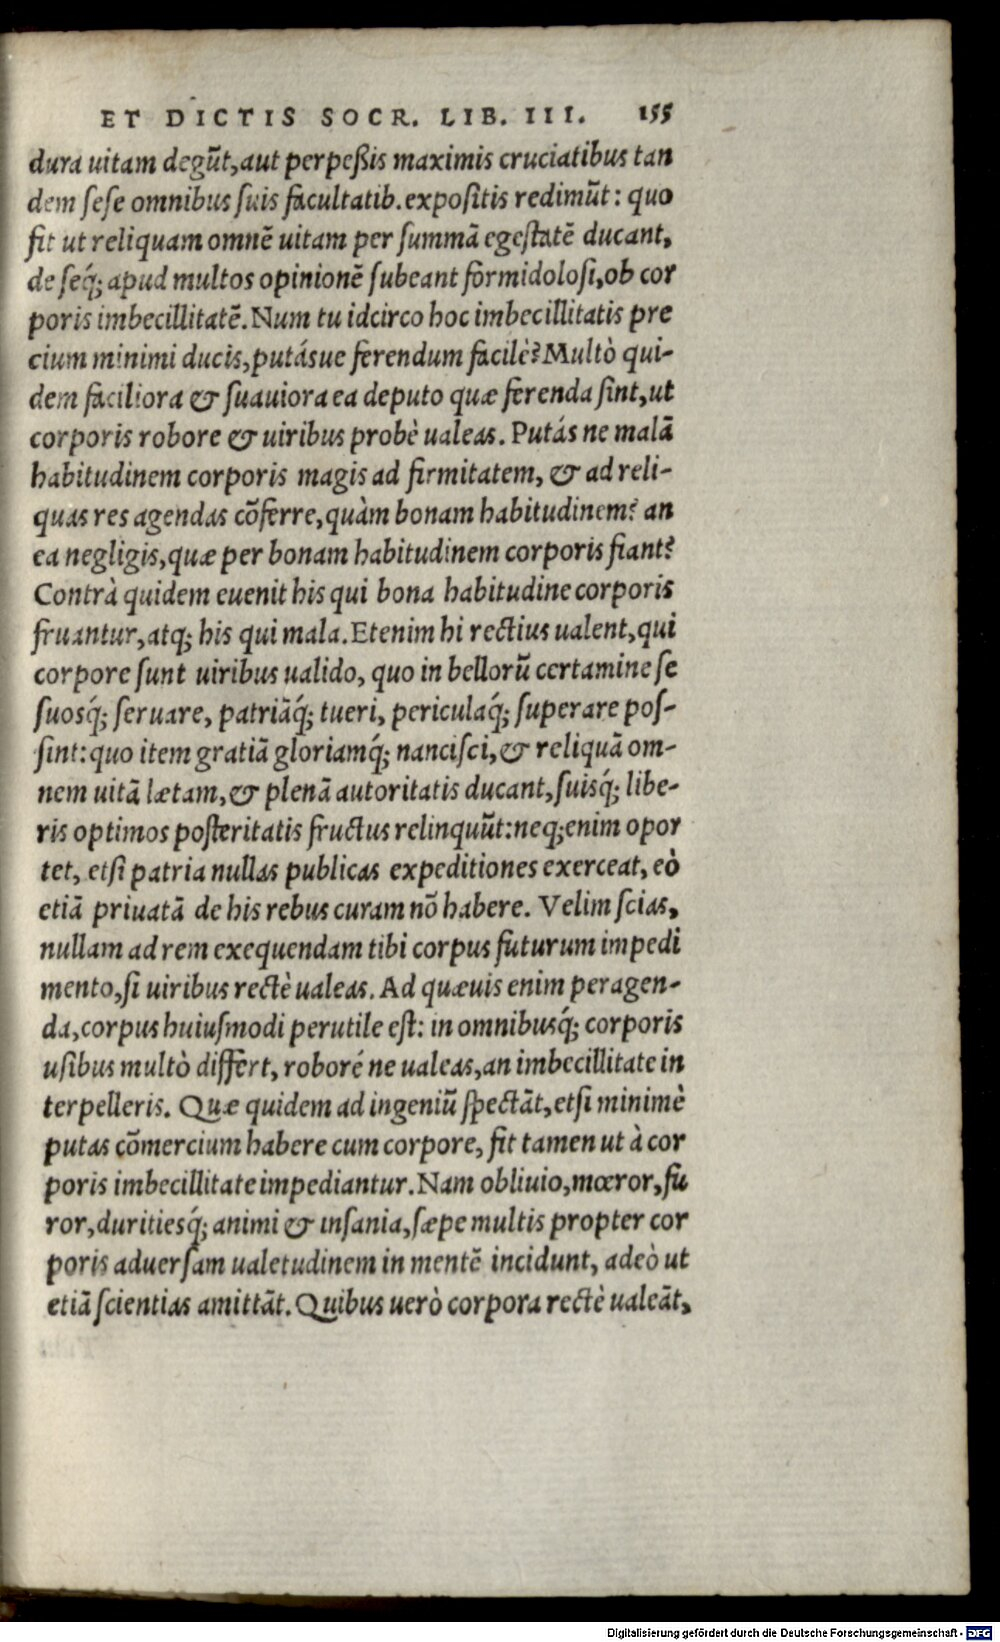 ET DICTIS SOCR. LIB. III. 155
dura uitam degūt, aut perpeßis maximis cruciatibus tan
dem ſeſe omnibus ſuis facultatib. expoſitis redimūt: quo
fit ut reliquam omnē uitam per ſummā egeſtatē ducant,
de ſeq́; apud multos opinionē ſubeant formidoloſi, ob cor
poris imbecillitatē. Num tu idcirco hoc imbecillitatis pre
cium minimi ducis, putásue ferendum facilè? Multò qui-
dem faciliora & ſuauiora ea deputo quæ ferenda ſint, ut
corporis robore & uiribus probè ualeas. Putás ne malā
habitudinem corporis magis ad firmitatem, & ad reli-
quas res agendas cōferre, quàm bonam habitudinem? an
ea negligis, quæ per bonam habitudinem corporis fiant?
Contrà quidem euenit his qui bona habitudine corporis
fruantur, atq; his qui mala. Etenim hi rectius ualent, qui
corpore ſunt uiribus ualido, quo in bellorū certamine ſe
ſuosq́; ſeruare, patriāq́; tueri, periculaq́; ſuperare poſ-
ſint: quo item gratiā gloriamq́; nanciſci, & reliquā om-
nem uitā lætam, & plenā autoritatis ducant, ſuisq́; libe-
ris optimos poſteritatis fructus relinquūt: neq; enim opor
tet, etſi patria nullas publicas expeditiones exerceat, eò
etiā priuatā de his rebus curam nō habere. Velim ſcias,
nullam ad rem exequendam tibi corpus futurum impedi
mento, ſi uiribus rectè ualeas. Ad quæuis enim peragen-
da, corpus huiuſmodi perutile eſt: in omnibusq́; corporis
uſibus multò differt, roboré ne ualeas, an imbecillitate in
terpelleris. Quæ quidem ad ingeniū ſpectāt, etſi minimè
putas cōmercium habere cum corpore, fit tamen ut à cor
poris imbecillitate impediantur. Nam obliuio, mœror, fu
ror, duritiesq́; animi & inſania, ſæpe multis propter cor
poris aduerſam ualetudinem in mentē incidunt, adeò ut
etiā ſcientias amittāt. Quibus uerò corpora rectè ualeāt,
Digitalisierung gefördert durch die Deutsche Forschungsgemeinschaft - DFG